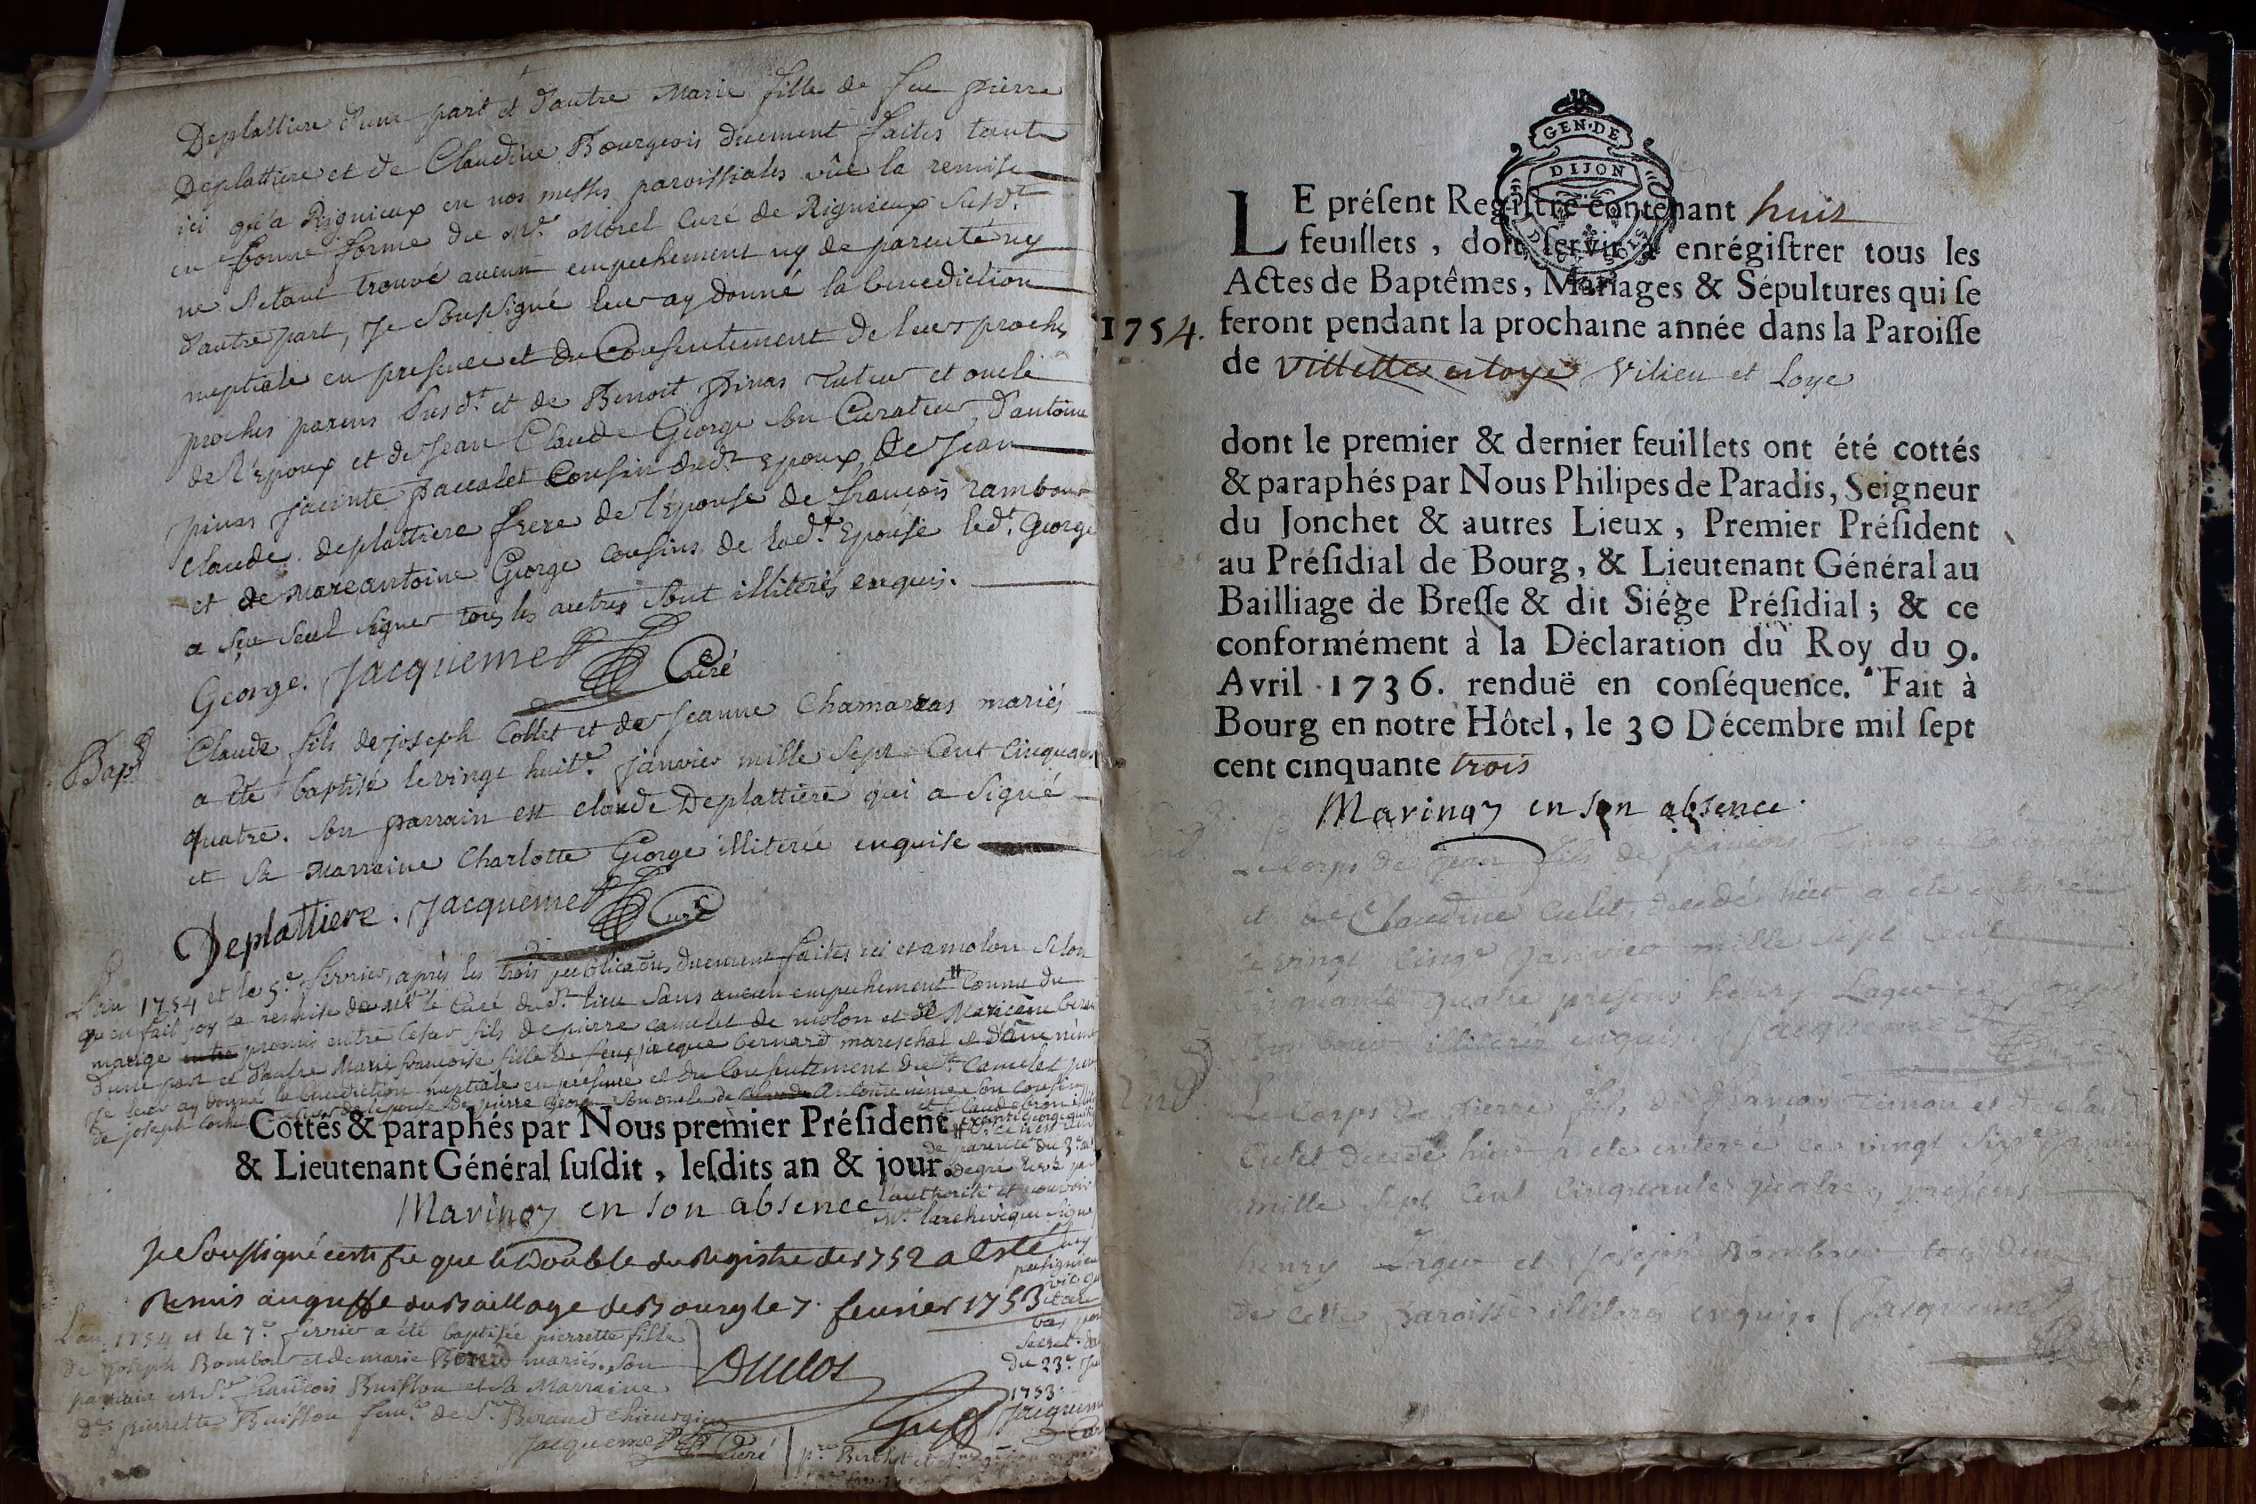 Deplattiere d'une part et d'autre Marie fille de feu pierre
Deplattiere et de Claudine Bourgeois duement faites tant
ici qu'a Rignieux en nos messes paroissiales vûe la remise
en bonne forme du Mr. Morel Curé de Rignieux susdt.
ne s'etant trouvé aucun empechement ny de parenté ny
d'autre part, je soussigné leur ay donné la benediction
nuptiale en presence et du Consentement de leurs proches
proches parens susdt. et de Benoit pinas Tuteur et oncle
de l'Epoux et de Jean Claude George son Curateur, d'antoine
pinas jacinte paccalet Cousin dudt. Epoux, de Jean
claude deplattiere frere de l'épouse de françois rambour
et de marcantoine George cousins de ladt. Epouse ledt. George
a sçu seul signer tous les autres sont illiterés enquis.
George. Jacquemet Curé
Bapt.
Claude fils de joseph Collet et de jeanne Chamarras mariés
a été baptisé le vingt huite. janvier mille sept Cent Cinquante
quatre. son parrain est claude Deplattiere qui a signé
et sa Marraine Charlotte George illiterée enquise
Deplattiere. Jacquemet Curé
L'an 1754 et le 5e. fevrier, après les trois publications duement faites ici et a molon selon
qu'en fait foy la remise de Mr. le Curé dudt. lieu sans aucun empechement # Connu du
mariage entre promis entre Cesar fils de pierre camelet de molon et de
d'une part et d'autre Marie françoise fille de feu jacque bernard mareschal et d'
je leur ay donné la benediction nuptiale en presence et du Consentement dudt. Camelet
de joseph de pierre George son oncle de son cousin
Cottés & paraphés par Nous premier Président
& Lieutenant Général susdit, lesdits an & jour.
Marinon en son absence
de parenté du 3e. au
degré levé par
l'authorité et pouvoir
Mr. l'archevêque signé
Je Soussigné certifie que le Double du Registre de 1752 a Esté
Remis au greffe du Baillage de Bourg le 7. fevrier 1753
Duclos
Greff
secret.
du 23e.
1753.
Jacquemet
L'an 1754 et le 7e. fevrier a été baptisée pierrette fille
de joseph Bombour et de marie mariés. son
parrain est Sr. françois Buisson et sa Marraine
De. pierrette Buisson feme. de Sr. Beraud Chirurgien
jacquemet Curé
GEN. DE
DIJON
LE présent Registre contenant huit
feuillets, doit servir à enrégistrer tous les
Actes de Baptêmes, Mariages & Sépultures qui se
1754. feront pendant la prochaine année dans la Paroisse
de Villette et Loye Vilieu et Loye
dont le premier & dernier feuillets ont été cottés
& paraphés par Nous Philipes de Paradis, Seigneur
du Jonchet & autres Lieux, Premier Président
au Présidial de Bourg, & Lieutenant Général au
Bailliage de Bresse & dit Siége Présidial; & ce
conformément à la Déclaration du Roy du 9.
Avril 1736. renduë en conséquence. Fait à
Bourg en notre Hôtel, le 30 Décembre mil sept
cent cinquante trois
Marinon en son absence.
Le corps de Jean fils de françois
et de Claudine Culet, decedé hier a été enterré
ce vingt Cinqe. Janvier mille sept cent
cinquante quatre presens henry Lager et joseph
illiterés enquis. Jacquemet
Le Corps de Pierre fils de françois Timon et de Claudine
Culet decedé hier a eté enterré ce vingt sixe. Janvier
mille sept Cent Cinquante quatre, presens
henry Lager et joseph Bombour tous deux
de cette Paroisse illiterés enquis. Jacquemet